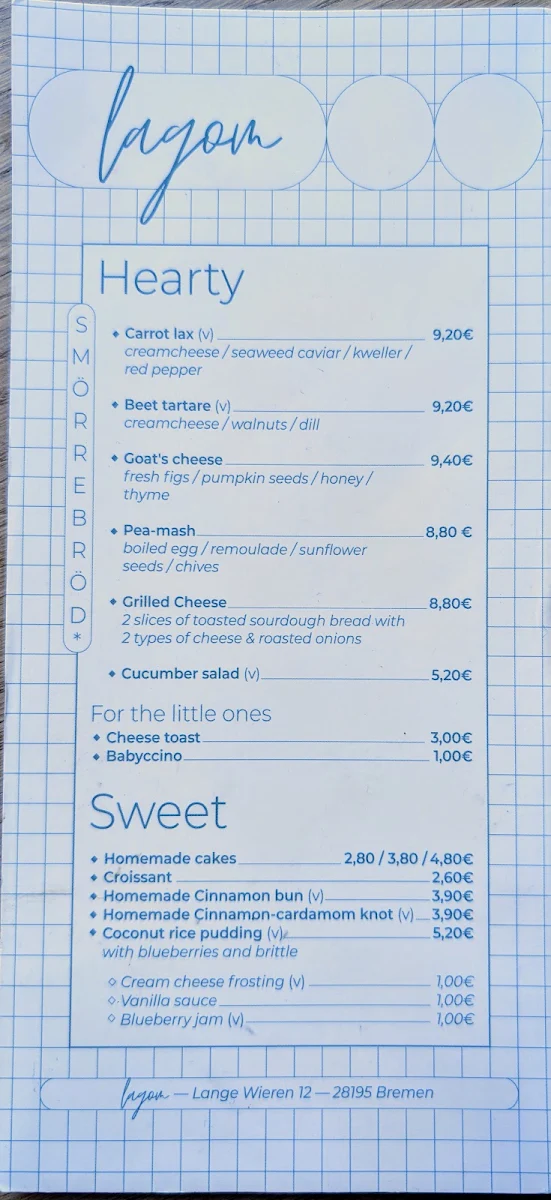 lagom
Hearty
SMÖRREBRÖD*
Carrot lax (v) 9,20€
creamcheese / seaweed caviar / kweller /
red pepper
Beet tartare (v) 9,20€
creamcheese / walnuts / dill
Goat's cheese 9,40€
fresh figs / pumpkin seeds / honey /
thyme
Pea-mash 8,80 €
boiled egg / remoulade / sunflower
seeds / chives
Grilled Cheese 8,80€
2 slices of toasted sourdough bread with
2 types of cheese & roasted onions
Cucumber salad (v) 5,20€
For the little ones
Cheese toast 3,00€
Babyccino 1,00€
Sweet
Homemade cakes 2,80 / 3,80 / 4,80€
Croissant 2,60€
Homemade Cinnamon bun (v) 3,90€
Homemade Cinnamon-cardamom knot (v) 3,90€
Coconut rice pudding (v) 5,20€
with blueberries and brittle
Cream cheese frosting (v) 1,00€
Vanilla sauce 1,00€
Blueberry jam (v) 1,00€
lagom — Lange Wieren 12 — 28195 Bremen